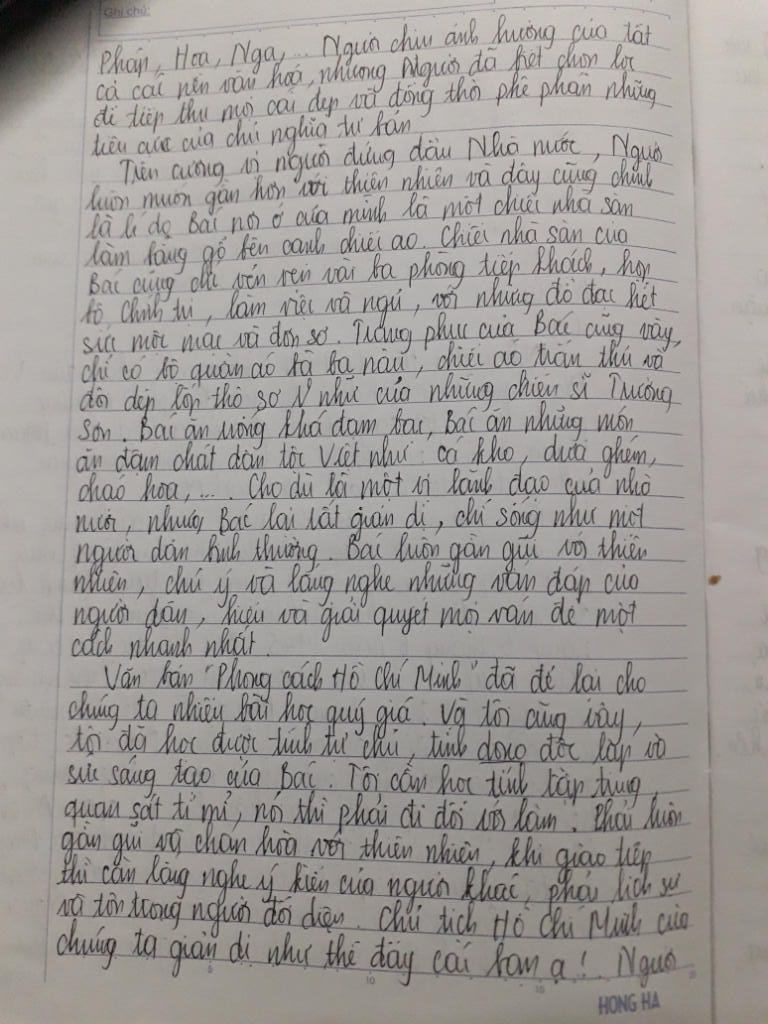 Ghi chú:
Pháp, Hoa, Nga,... Người chịu ảnh hưởng của tất
cả các nền văn hoá, nhưng Người đã biết chọn lọc
để tiếp thu mọi cái đẹp và đồng thời phê phán những
tiêu cực của chủ nghĩa tư bản
Trên cương vị người đứng đầu Nhà nước, Người
luôn muốn gần hơn với thiên nhiên và đây cũng chính
là lí do Bác nơi ở của mình là một chiếc nhà sàn
làm bằng gỗ bên cạnh chiếc ao. Chiếc nhà sàn của
Bác cũng chỉ vẻn vẹn vài ba phòng tiếp khách, họp
bộ Chính trị, làm việc và ngủ, với những đồ đạc hết
sức mộc mạc và đơn sơ. Trang phục của Bác cũng vậy,
chỉ có bộ quần áo bà ba nâu, chiếc áo trấn thủ và
đôi dép lốp thô sơ như của những chiến sĩ Trường
Sơn. Bác ăn uống khá đạm bạc, Bác ăn những món
ăn đậm chất dân tộc Việt như: cá kho, dưa ghém,
cháo hoa,... Cho dù là một vị lãnh đạo của nhà
nước, nhưng Bác lại rất giản dị, chỉ sống như một
người dân bình thường. Bác luôn gần gũi với thiên
nhiên, chú ý và lắng nghe những vấn đáp của
người dân, hiểu và giải quyết mọi vấn đề một
cách nhanh nhất.
Văn bản "Phong cách Hồ Chí Minh" đã để lại cho
chúng ta nhiều bài học quý giá. Và tôi cũng vậy,
tôi đã học được tính tự chủ, tính độc lập và
sức sáng tạo của Bác. Tôi cần học tính tập trung,
quan sát tỉ mỉ, nói thì phải đi đôi với làm. Phải luôn
gần gũi và chan hòa với thiên nhiên, khi giao tiếp
thì cần lắng nghe ý kiến của người khác, phải lịch sự
và tôn trọng người đối diện. Chủ tịch Hồ Chí Minh của
chúng ta giản dị như thế đấy các bạn ạ! Người
HONG HA